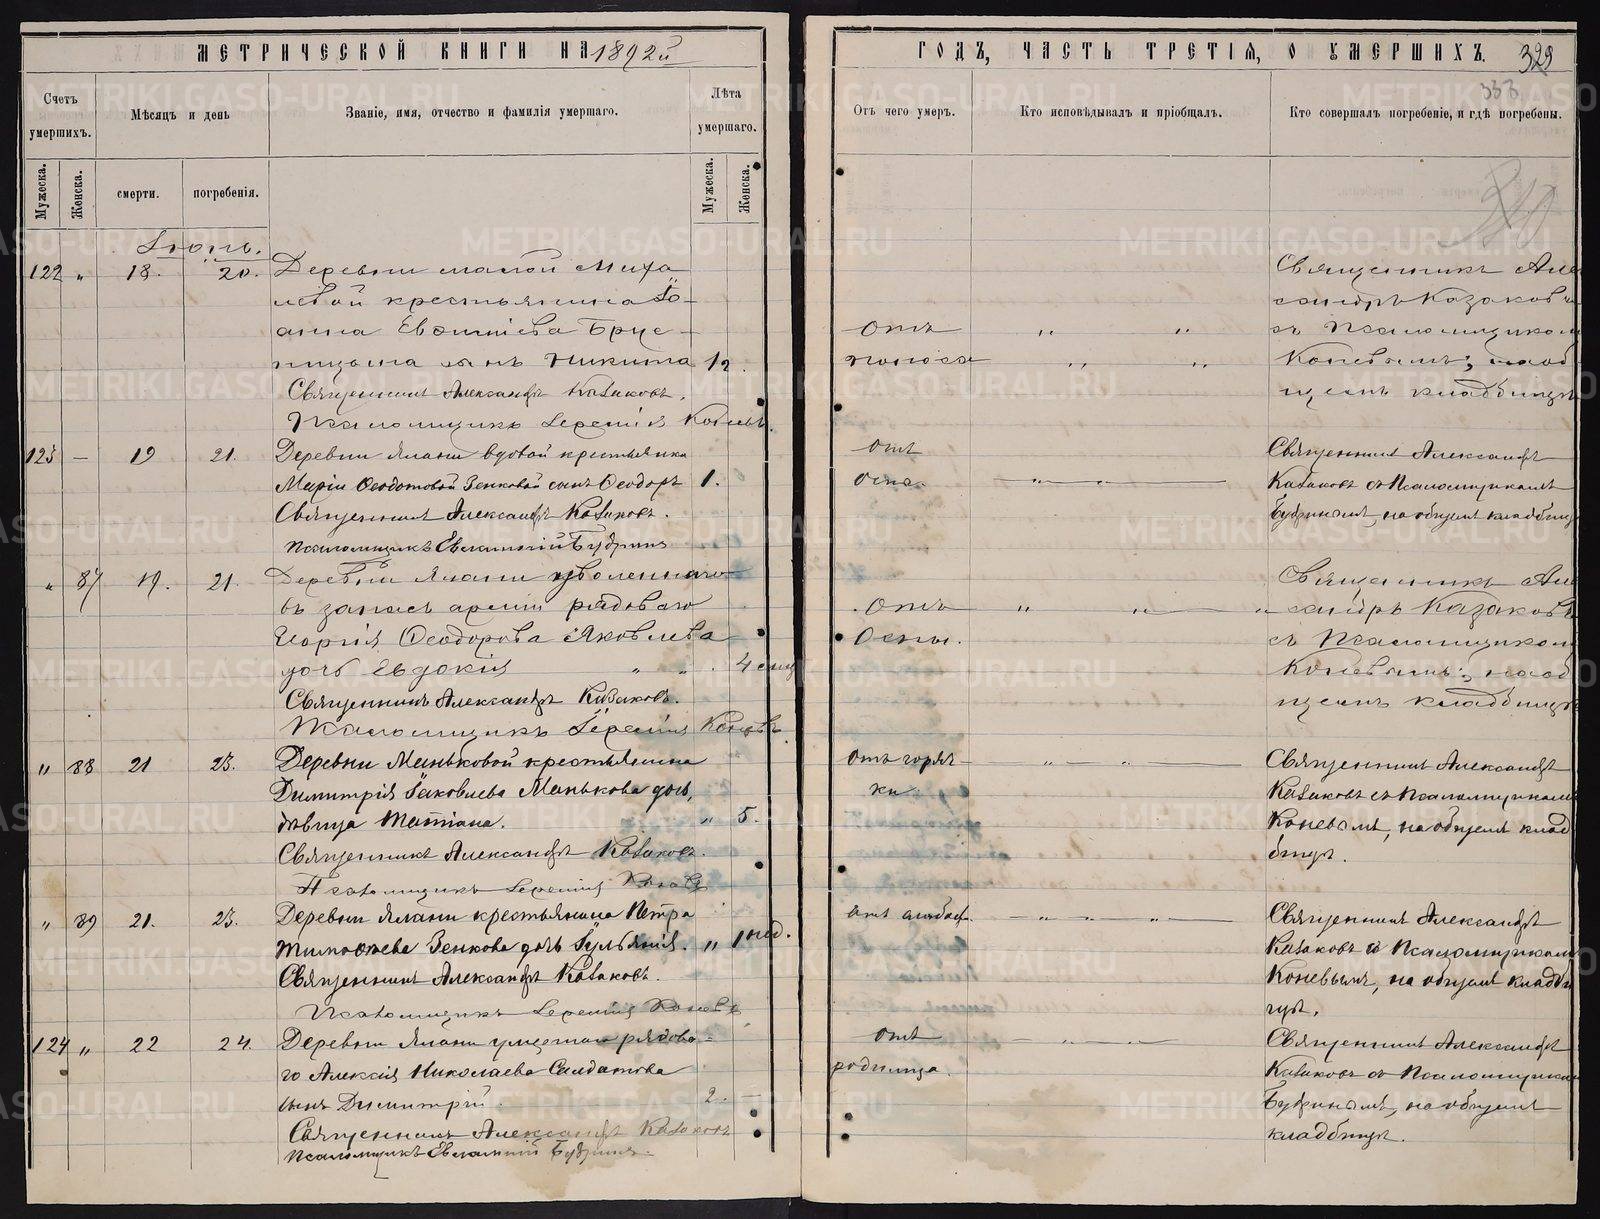 МЕТРИЧЕСКОЙ КНИГИ НА 1892й
Счетъ умершихъ.
Мѣсяцъ и день
Званіе, имя, отчество и фамилія умершаго.
Лѣта умершаго.
Мужеска.
Женска.
смерти.
погребенія.
Мужеска.
Женска.
122 " 18. 20. Деревни малой Миха
левой крестьянина Іо-
анна
сынъ Никита 12.
Священникъ Александръ Казаковъ.
Псаломщикъ Іеремія Коневъ.
123 — 19 21. Деревни Ялани вдовой крестьянки
Маріи Ѳеодотовой Зенковой сынъ Ѳеодоръ 1.
Священникъ Александръ Казаковъ.
Псаломщикъ Евгеній Будринъ
" 87 19. 21. Деревни Ялани уволеннаго
въ запасъ арміи рядоваго
Георгія Ѳеодорова Яковлева
дочь Евдокія " " 4
Священникъ Александръ Казаковъ.
Псаломщикъ Іеремія Коневъ
" 88 21 23. Деревни Маньковой крестьянина
Димитрія Іаковлева Манькова дочь,
дѣвица Татіана. " 5.
Священникъ Александръ Казаковъ.
Псаломщикъ Іеремія Коневъ
" 89 21. 23. Деревни Ялани крестьянина Петра
Тимоѳеева Зенкова дочь Іуліанія. " 1 нед.
Священникъ Александръ Казаковъ.
Псаломщикъ Іеремія Коневъ
124 " 22 24. Деревни Ялани рядова-
го Алексія Николаева Салдатова
сынъ Димитрій. 2. —
Священникъ Александръ Казаковъ
Псаломщикъ Евгеній Будринъ.
ГОДЪ, ЧАСТЬ ТРЕТІЯ, О УМЕРШИХЪ. 329
338
Отъ чего умеръ.
Кто исповѣдывалъ и пріобщалъ.
Кто совершалъ погребеніе, и гдѣ погребены.
340
Священникъ Але
сандръ Казаковъ
отъ " " съ Псаломщиком
поноса " " Коневымъ; на об
щемъ кладбищѣ
отъ Священникъ Александръ
оспы. — " — " — Казаковъ съ Псаломщикомъ
Будринымъ, на общемъ кладбищ
Священникъ Але
отъ " " — " сандръ Казаковъ
оспы. съ Псаломщиком
Коневымъ; на об
щемъ кладбищѣ
отъ горяч- — " — " — Священникъ Александръ
ки Казаковъ съ Псаломщикомъ
Коневымъ, на общемъ клад
бищѣ.
отъ слабос. — " — " — " — Священникъ Александръ
Казаковъ съ Псаломщикомъ
Коневымъ, на общемъ кладби
щѣ.
отъ — " — " — Священникъ Александръ
родимца. Казаковъ съ Псаломщиком
Будринымъ, на общемъ
кладбищѣ.
METRIKI.GASO-URAL.RU